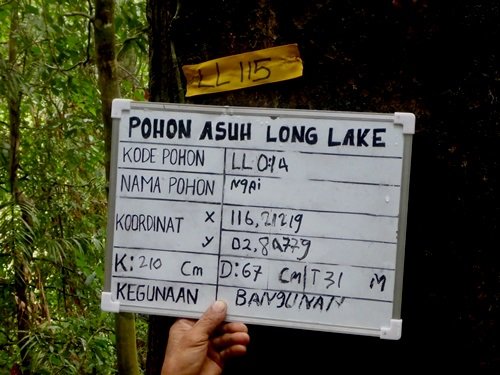 LL 115
POHON ASUH LONG LAKE
KODE POHON LL 014
NAMA POHON NgAi
KOORDINAT X 116,21219
y 02,84779
K: 210 Cm D: 67 CM T 31 M
KEGUNAAN BANGUNAN